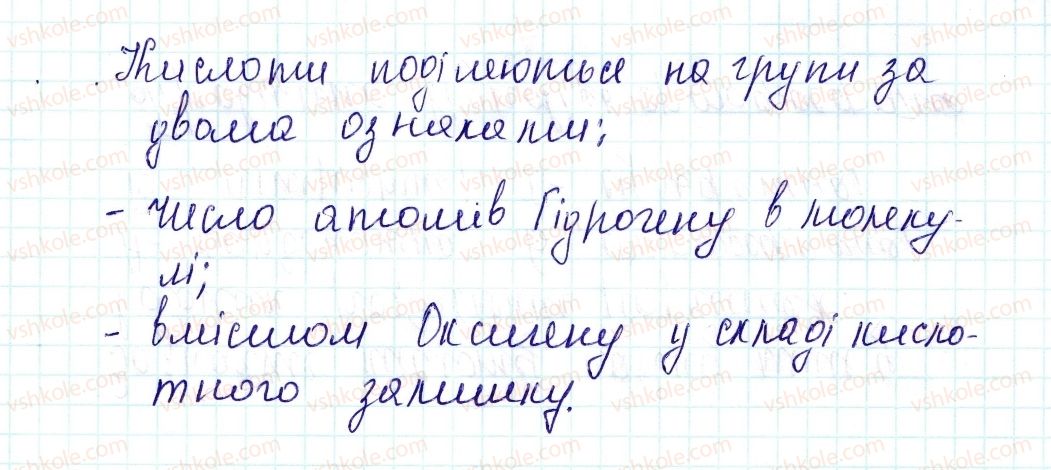 Кислоти поділяються на групи за
двома ознаками;
- число атомів Гідрогену в молеку-
лі;
- вмістом Оксигену у складі кисло-
тного залишку.